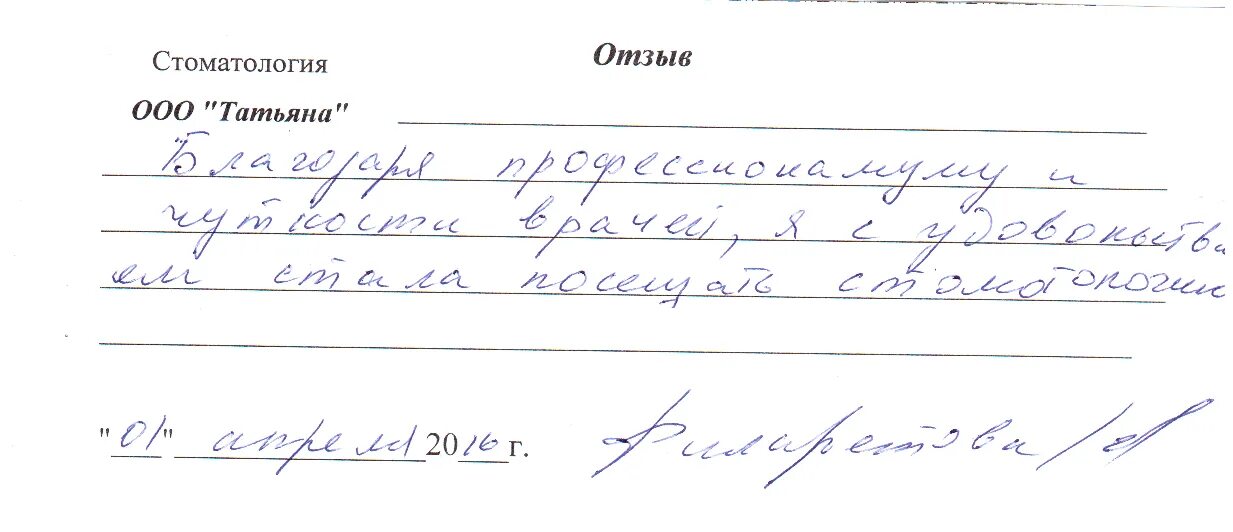 Стоматология
Отзыв
ООО "Татьяна"
Благодаря профессионализму и
чуткости врачей, я с удовольстви
ем стала посещать стоматологию
"01" апреля 2016 г. Филаретова